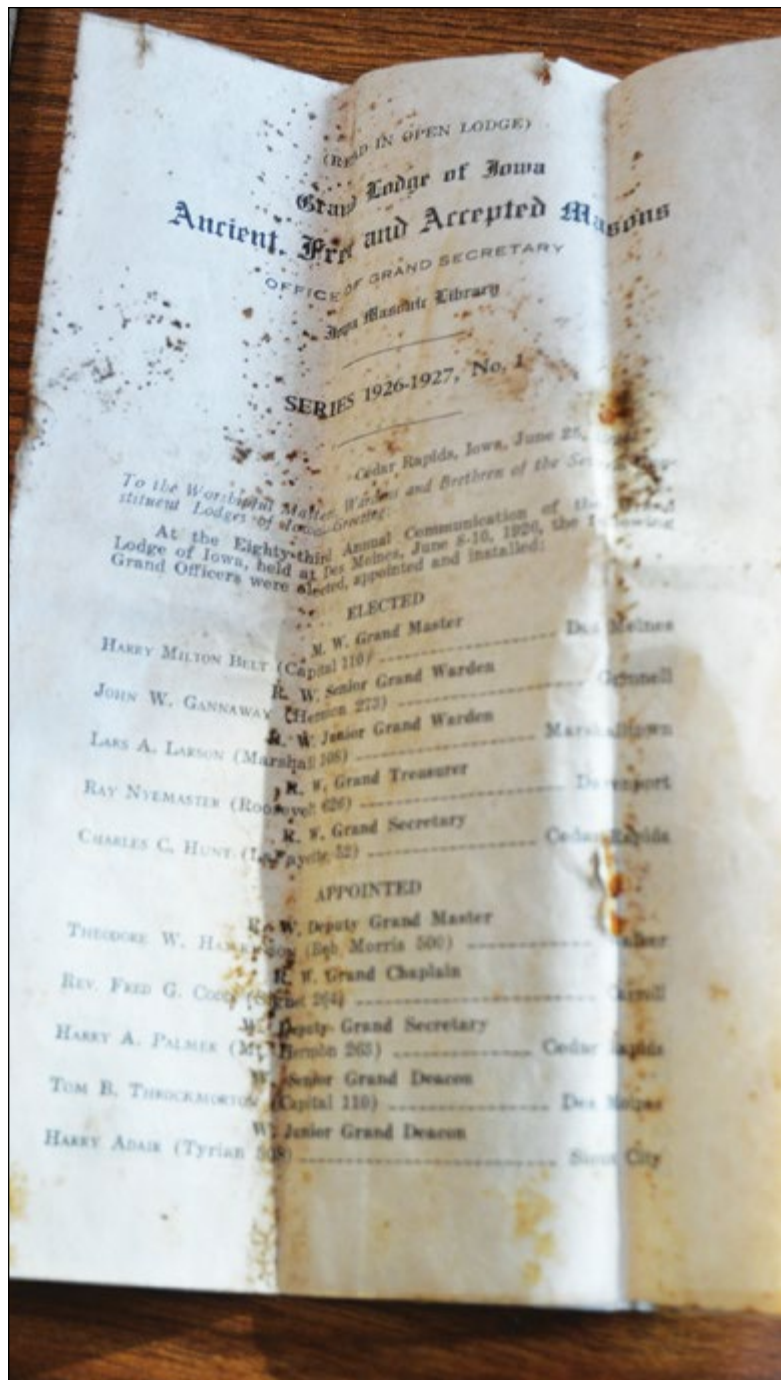 (READ IN OPEN LODGE)
Grand Lodge of Iowa
Ancient, Free and Accepted Masons
OFFICE OF GRAND SECRETARY
Iowa Masonic Library
SERIES 1926-1927, No. 1
Cedar Rapids, Iowa, June 25,
To the Worshipful Master, Wardens and Brethren of the
stituent Lodges of Iowa—Greeting:
At the Eighty-third Annual Communication of the Grand
Lodge of Iowa, held at Des Moines, June 8-10, 1926, the following
Grand Officers were elected, appointed and installed:
ELECTED
M. W. Grand Master
HARRY MILTON BELT (Capital 110) Des Moines
R. W. Senior Grand Warden
JOHN W. GANNAWAY (Hermon 273) Grinnell
R. W. Junior Grand Warden
LARS A. LARSON (Marshall 108) Marshalltown
R. W. Grand Treasurer
RAY NYEMASTER (Roosevelt 626) Davenport
R. W. Grand Secretary
CHARLES C. HUNT (Lafayette 52) Cedar Rapids
APPOINTED
R. W. Deputy Grand Master
THEODORE W. (Rob Morris 500) Walker
R. W. Grand Chaplain
REV. FRED G. 264) Carroll
W. Deputy Grand Secretary
HARRY A. PALMER (Mt. Hermon 263) Cedar Rapids
W. Senior Grand Deacon
TOM B. THROCKMORTON (Capital 110) Des Moines
W. Junior Grand Deacon
HARRY ADAIR (Tyrian 508) Sioux City